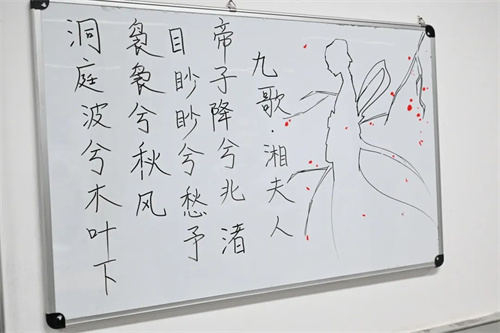 九歌·湘夫人
帝子降兮北渚
目眇眇兮愁予
袅袅兮秋风
洞庭波兮木叶下